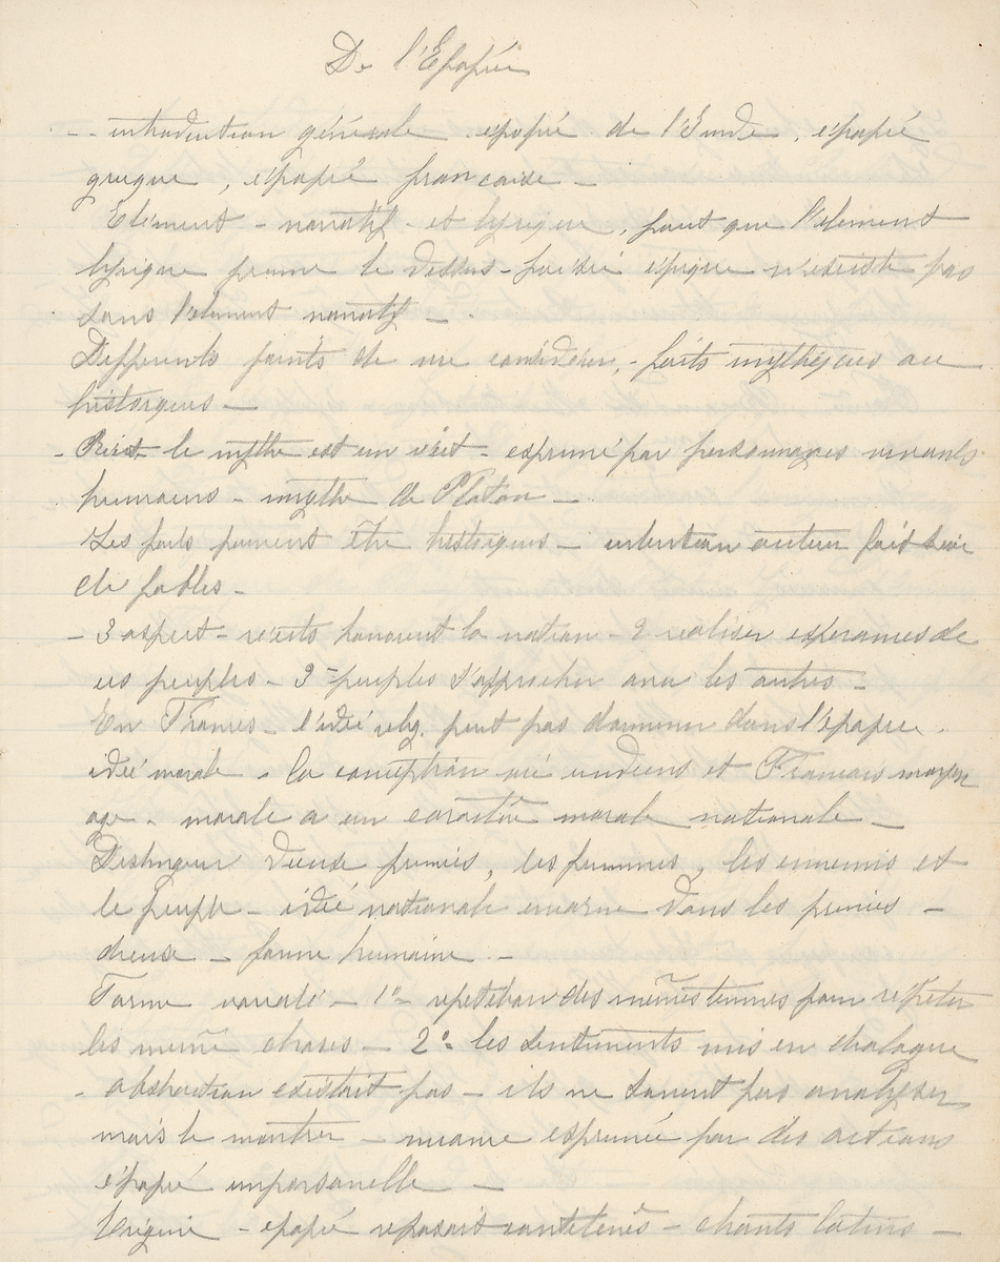 De l'Epopée
-- introduction générale . épopée de l'Inde, épopée
grecque, épopée française -
Element - narratif - et lyrique, faut que l'element
lyrique prenne le dessus - poésie épique n'existe pas
sans l'element narratif -
Differents points de vue considérer, - faits mythiques ou
historiques -
- le mythe est un récit - exprimé par personnages vivants
humains - mythe de Platon -
Les faits peuvent être historiques - intention auteur
de fables -
- 3 aspect - récits honorent la nation - 2 realiser esperances de
ces peuples - 3 = peuples d'approcher avec les autres -
En France - l'idée relig. peut pas dominer dans l'épopée.
idée morale - la conception indiens et Francais moyen
age - morale a un caractère morale nationale -
Distinguer dieux premiers, les femmes, les ennemis et
le peuple - idée nationale incarne dans les premiers -
dieux - forme humaine . -
Forme - 1° - repetition des mêmes termes pour répéter
les même choses - 2° les sentiments mis en dialogue
- abstraction existait pas - ils ne savent pas analyser
mais le montrer - exprimée par des actions
épopée impersonelle -
Origine - epopée reposait cantilènes - chants latins -